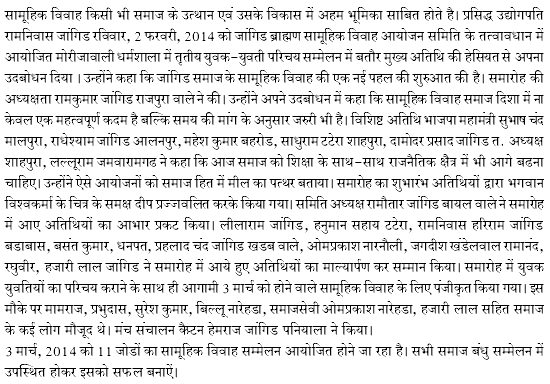 सामूहिक विवाह किसी भी समाज के उत्थान एवं उसके विकास में अहम भूमिका साबित होते है। प्रसिद्ध उद्योगपति
रामनिवास जांगिड रविवार, 2 फरवरी, 2014 को जांगिड ब्राह्मण सामूहिक विवाह आयोजन समिति के तत्वावधान में
आयोजित मोरीजावाली धर्मशाला में तृतीय युवक-युवती परिचय सम्मेलन में बतौर मुख्य अतिथि की हेसियत से अपना
उदबोधन दिया । उन्होंने कहा कि जांगिड समाज के सामूहिक विवाह की एक नई पहल की शुरुआत की है। समारोह की
अध्यक्षता रामकुमार जांगिड राजपुरा वाले ने की। उन्होंने अपने उदबोधन में कहा कि सामूहिक विवाह समाज दिशा में ना
केवल एक महत्वपूर्ण कदम है बल्कि समय की मांग के अनुसार जरुरी भी है। विशिष्ट अतिथि भाजपा महामंत्री सुभाष चंद
मालपुरा, राधेश्याम जांगिड आलनपुर, महेश कुमार बहरोड, साधुराम टटेरा शाहपुरा, दामोदर प्रसाद जांगिड त. अध्यक्ष
शाहपुरा, लल्लूराम जमवारामगढ ने कहा कि आज समाज को शिक्षा के साथ-साथ राजनैतिक क्षैत्र में भी आगे बढना
चाहिए। उन्होंने ऐसे आयोजनों को समाज हित में मील का पत्थर बताया। समारोह का शुभारंभ अतिथियों द्वारा भगवान
विश्वकर्मा के चित्र के समक्ष दीप प्रज्जवलित करके किया गया। समिति अध्यक्ष रामौतार जांगिड बायल वाले ने समारोह
में आए अतिथियों का आभार प्रकट किया। लीलाराम जांगिड, हनुमान सहाय टटेरा, रामनिवास हरिराम जांगिड
बडाबास, बसंत कुमार, धनपत, प्रहलाद चंद जांगिड खडब वाले, ओमप्रकाश नारनौली, जगदीश खंडेलवाल रामानंद,
रघुवीर, हजारी लाल जांगिड ने समारोह में आये हुए अतिथियों का माल्यार्पण कर सम्मान किया। समारोह में युवक
युवतियों का परिचय कराने के साथ ही आगामी 3 मार्च को होने वाले सामूहिक विवाह के लिए पंजीकृत किया गया। इस
मौके पर मामराज, प्रभुदास, सुरेश कुमार, बिल्लू नारेहडा, समाजसेवी ओमप्रकाश नारेहडा, हजारी लाल सहित समाज
के कई लोग मौजूद थे। मंच संचालन कैप्टन हेमराज जांगिड पनियाला ने किया।
3 मार्च, 2014 को 11 जोडों का सामूहिक विवाह सम्मेलन आयोजित होने जा रहा है। सभी समाज बंधु सम्मेलन में
उपस्थित होकर इसको सफल बनाऐं।